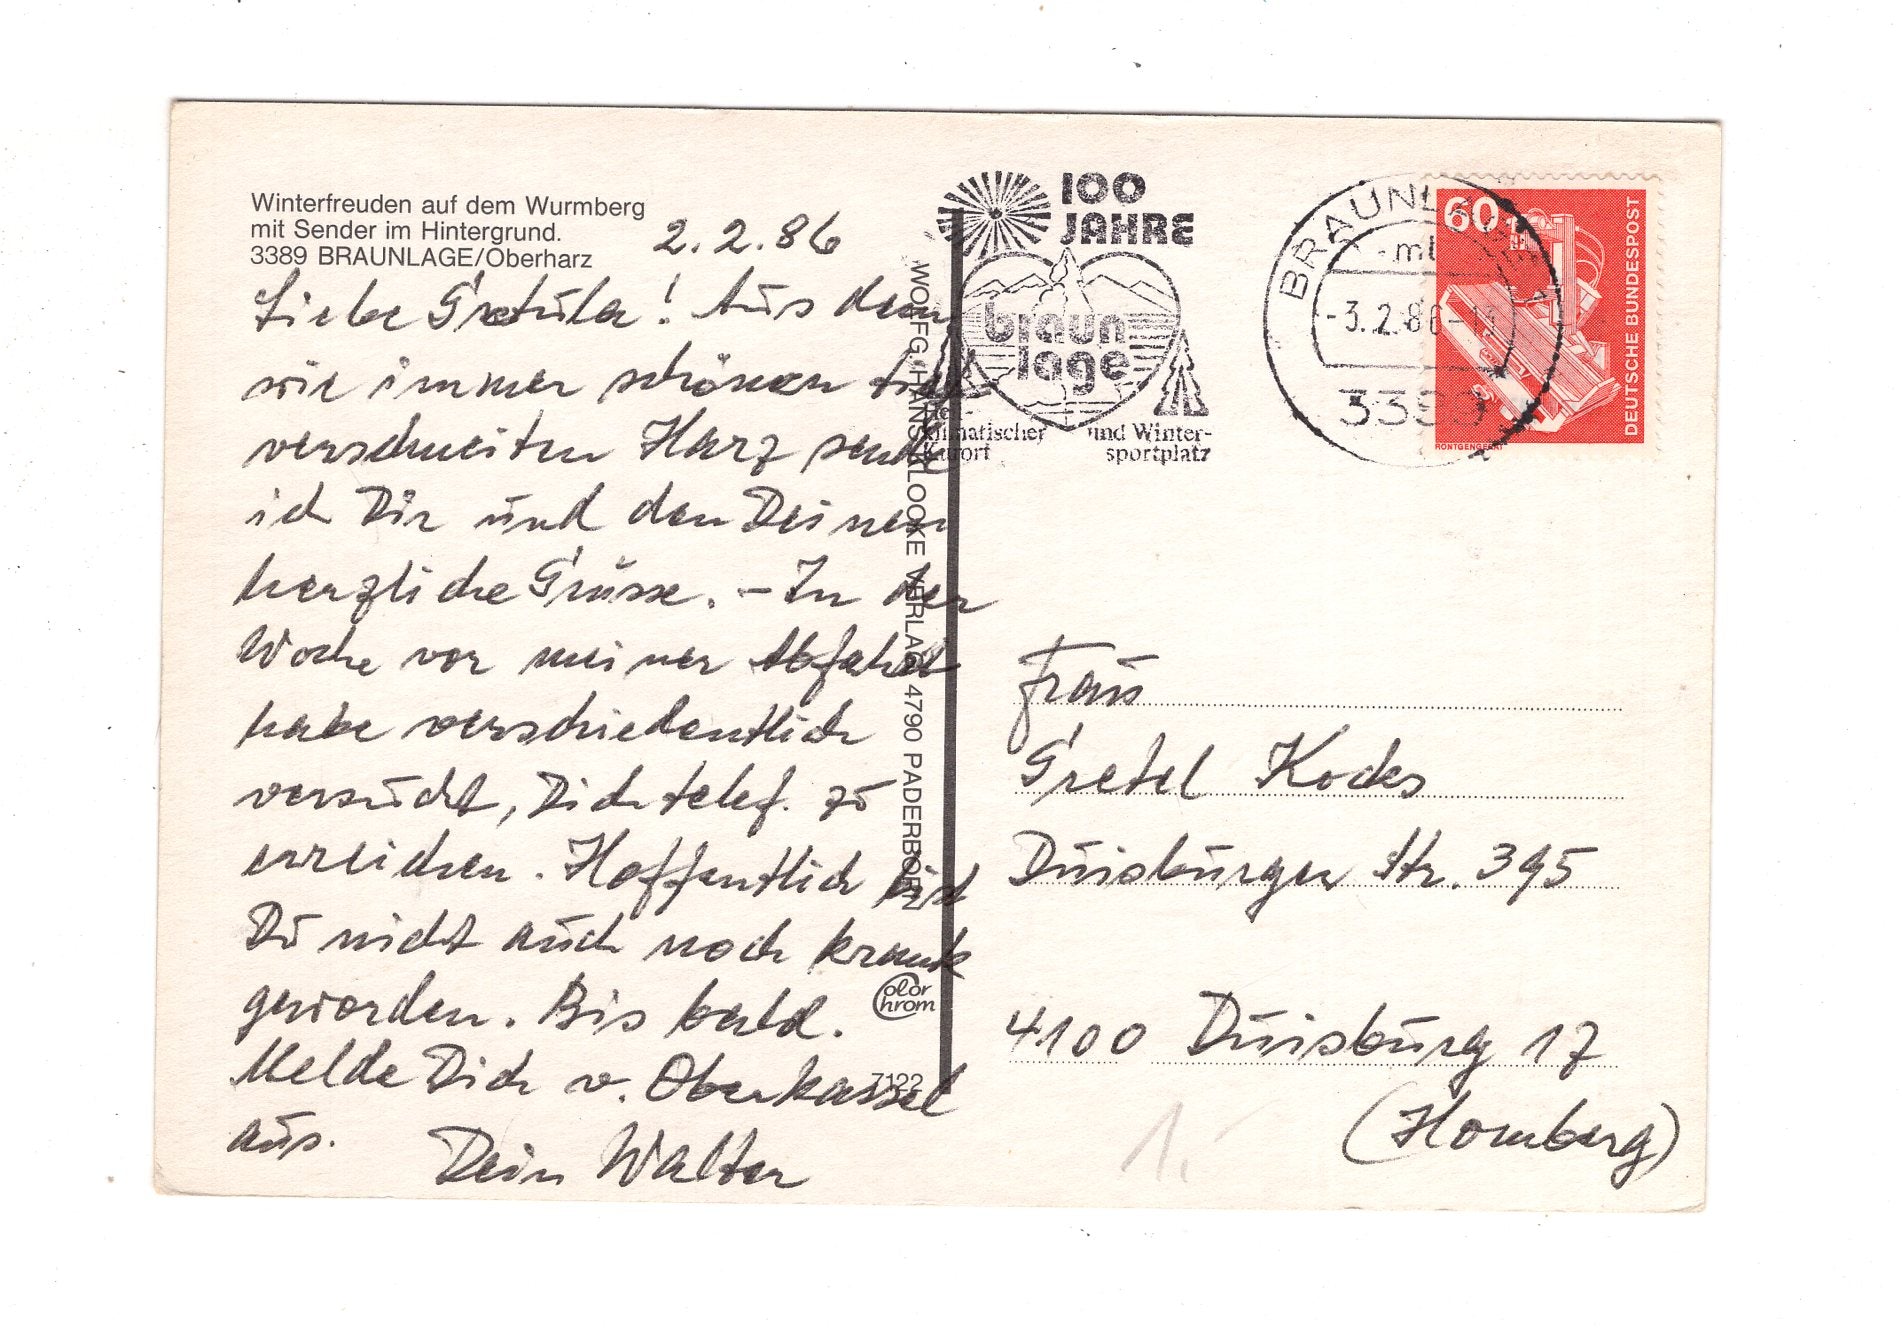 Winterfreuden auf dem Wurmberg
mit Sender im Hintergrund.
3389 BRAUNLAGE/Oberharz
2.2.86
Liebe Gretula! Aus dem
wie immer schönen tief
verschneiten Harz sende
ich Dir und den Deinen
herzliche Grüsse. - In der
Woche vor meiner Abfahrt
habe verschiedentlich
versucht, Dich telef. zu
erreichen. Hoffentlich bist
Du nicht auch noch krank
geworden. Bis bald.
Melde Dich v. Oberkassel
aus.
Dein Walter
WOLFG. HANS KLOCKE VERLAG 4790 PADERBORN
Color
Chrom
7122
100
JAHRE
braun
lage
Heil-
klimatischer
Kurort
und Winter-
sportplatz
BRAUNLAGE 1
mb
-3.2.86-13
3389
60
DEUTSCHE BUNDESPOST
RÖNTGENGERÄT
Frau
Gretel Kocks
Duisburger Str. 395
4100 Duisburg 17
(Homberg)
1.-